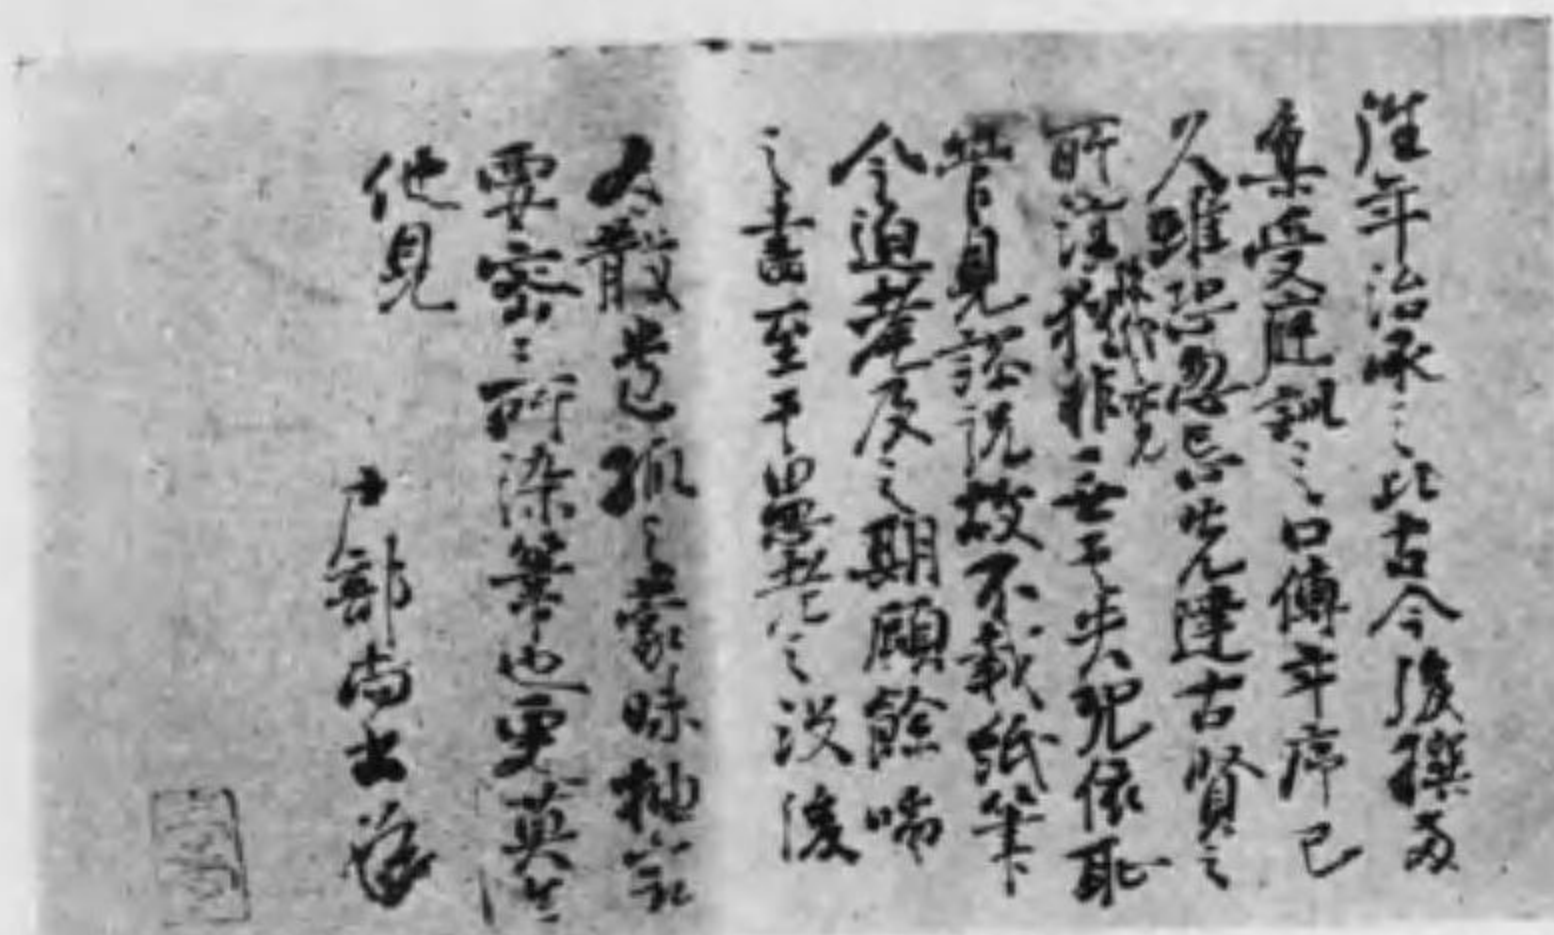 往年治承之比古今後撰両
集受庭訓之口傳年序已
久雖恐忽忘先達古賢之
所注猶非無失況依恥
管見謬説故不載紙筆
今迫耄及之期顧餘喘
之盡至于愚老之没後
為散先孤之蒙昧抽最
要密密所染筆也更莫
他見
戸部尚書